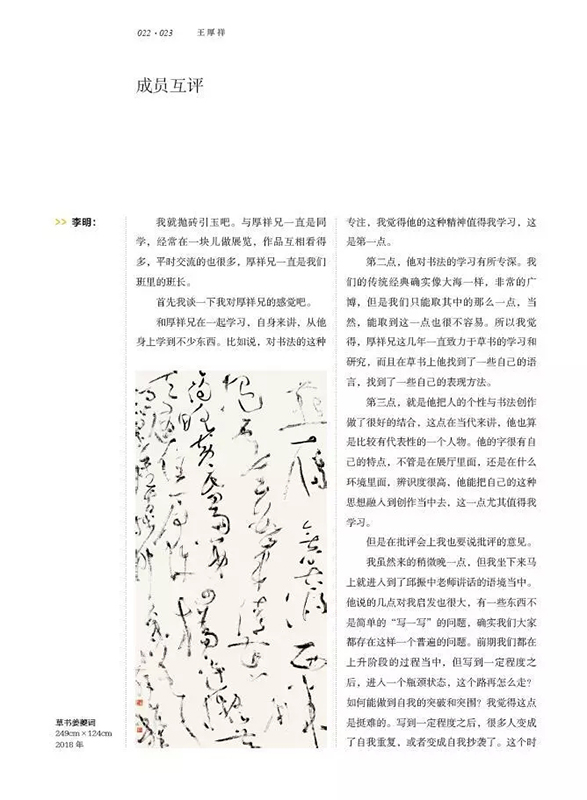 022 · 023 王厚祥
成员互评
>> 李明：
我就抛砖引玉吧。与厚祥兄一直是同
学，经常在一块儿做展览，作品互相看得
多，平时交流的也很多，厚祥兄一直是我们
班里的班长。
首先我谈一下我对厚祥兄的感觉吧。
和厚祥兄在一起学习，自身来讲，从他
身上学到不少东西。比如说，对书法的这种
草书姜夔词
249cm×124cm
2018 年
专注，我觉得他的这种精神值得我学习，这
是第一点。
第二点，他对书法的学习有所专深。我
们的传统经典确实像大海一样，非常的广
博，但是我们只能取其中的那么一点，当
然，能取到这一点也很不容易。所以我觉
得，厚祥兄这几年一直致力于草书的学习和
研究，而且在草书上他找到了一些自己的语
言，找到了一些自己的表现方法。
第三点，就是他把人的个性与书法创作
做了很好的结合，这点在当代来讲，他也算
是比较有代表性的一个人物。他的字很有自
己的特点，不管是在展厅里面，还是在什么
环境里面，辨识度很高，他能把自己的这种
思想融入到创作当中去，这一点尤其值得我
学习。
但是在批评会上我也要说批评的意见。
我虽然来的稍微晚一点，但我坐下来马
上就进入到了邱振中老师讲话的语境当中。
他说的几点对我启发也很大，有一些东西不
是简单的“写一写”的问题，确实我们大家
都存在这样一个普遍的问题。前期我们都在
上升阶段的过程当中，但写到一定程度之
后，进入一个瓶颈状态，这个路再怎么走？
如何能做到自我的突破和突围？我觉得这点
是挺难的。写到一定程度之后，很多人变成
了自我重复，或者变成自我抄袭了。这个时